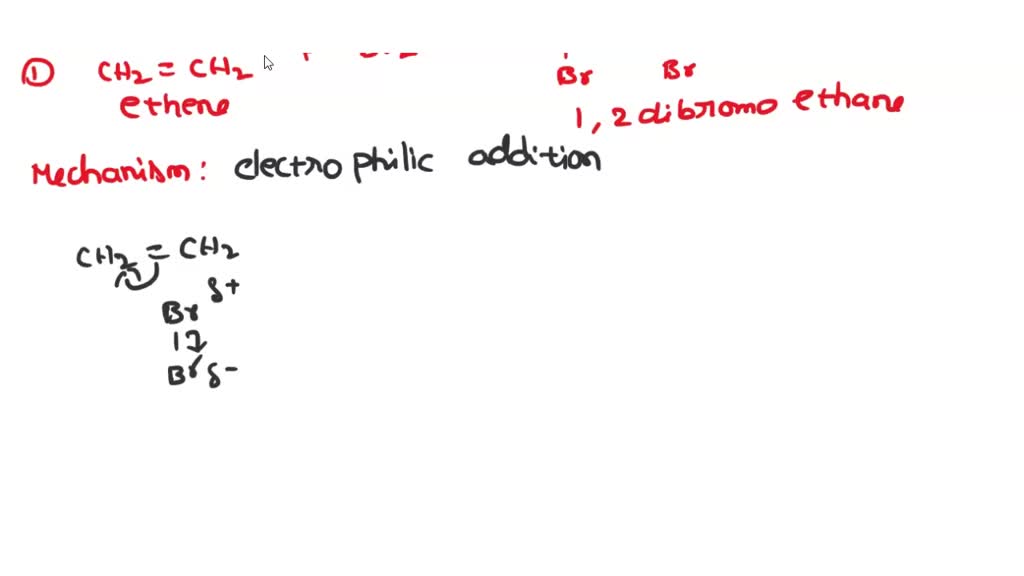 ① CH2 = CH2
Br Br
ethene
1, 2 dibromo ethane
Mechanism: electrophilic addition
CH2 = CH2
Br δ+
Br δ-